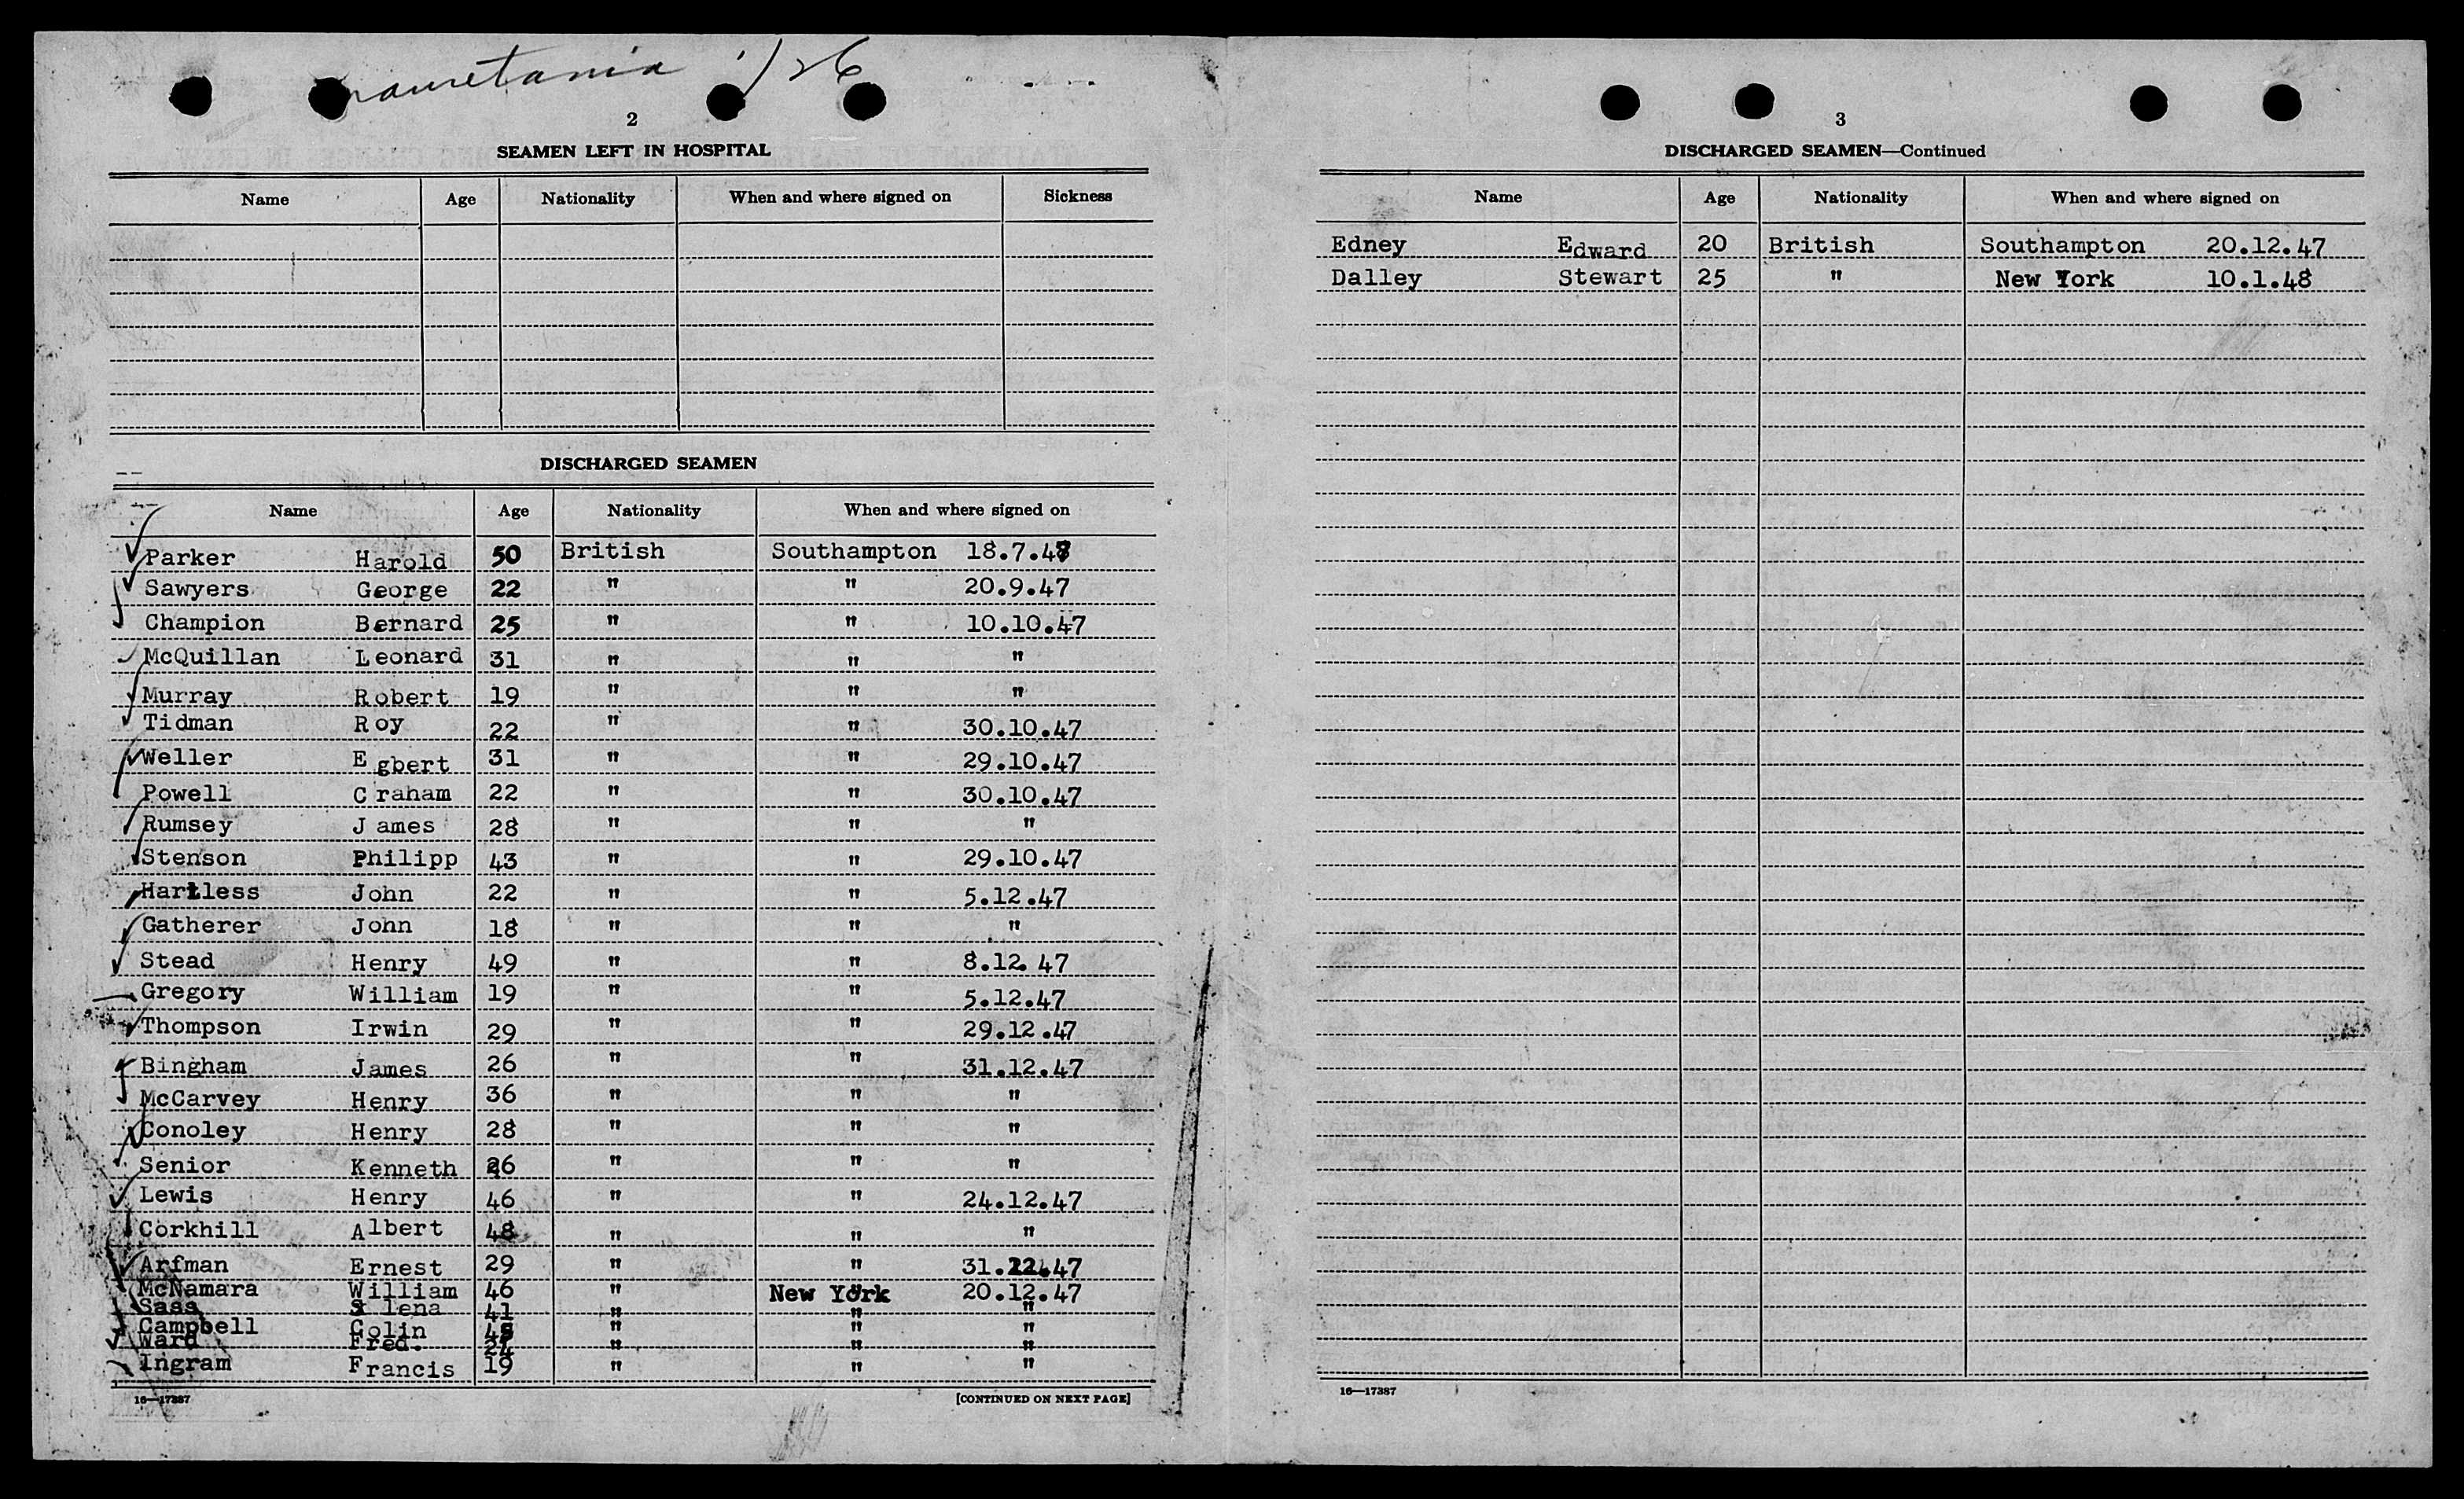 Mauretania 1/26
2
SEAMEN LEFT IN HOSPITAL
Name Age Nationality When and where signed on Sickness
DISCHARGED SEAMEN
Name Age Nationality When and where signed on
Parker Harold 50 British Southampton 18.7.47
Sawyers George 22 " " 20.9.47
Champion Bernard 25 " " 10.10.47
McQuillan Leonard 31 " " "
Murray Robert 19 " " "
Tidman Roy 22 " " 30.10.47
Weller Egbert 31 " " 29.10.47
Powell Craham 22 " " 30.10.47
Rumsey James 28 " " "
Stenson Philipp 43 " " 29.10.47
Hartless John 22 " " 5.12.47
Gatherer John 18 " " "
Stead Henry 49 " " 8.12.47
Gregory William 19 " " 5.12.47
Thompson Irwin 29 " " 29.12.47
Bingham James 26 " " 31.12.47
McCarvey Henry 36 " " "
Conoley Henry 28 " " "
Senior Kenneth 26 " " "
Lewis Henry 46 " " 24.12.47
Corkhill Albert 48 " " "
Arfman Ernest 29 " " 31.12.47
McNamara William 46 " New York 20.12.47
Sass 41 " " "
Campbell Colin " " "
Ward Fred. 24 " " "
Ingram Francis 19 " " "
16—17387 [CONTINUED ON NEXT PAGE]
3
DISCHARGED SEAMEN—Continued
Name Age Nationality When and where signed on
Edney Edward 20 British Southampton 20.12.47
Dalley Stewart 25 " New York 10.1.48
16—17387